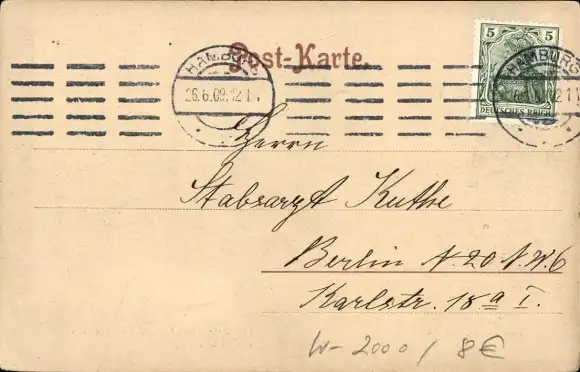 Post-Karte.
5 5
DEUTSCHES REICH
HAMBURG
26.6.09.12-1 V
HAMBURG
Herrn
Stabsarzt Kuthe
Berlin N.20 N.W.6
Karlstr. 18 a I.
W-2000 / 8 €